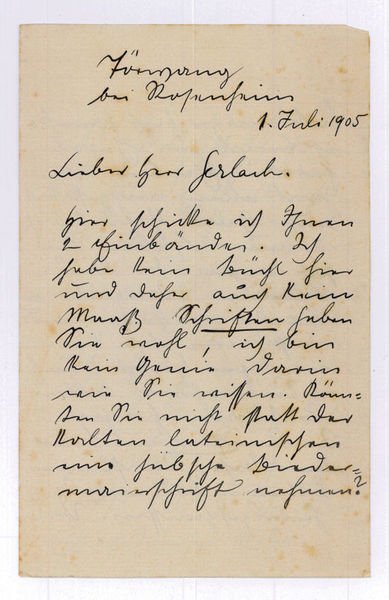 Törwang
bei Rosenheim
1. Juli 1905
Lieber Herr Gerlach.
Hier schicke ich Ihnen
2 Einbände. Ich
habe kein Büchl hier
und daher auch kein
Maaß. Schriften haben
Sie wohl, ich bin
kein Genie darin
wie Sie wissen. Könn=
ten Sie nicht statt der
kalten lateinischen
eine hübsche Bieder=
maierschrift nehmen?